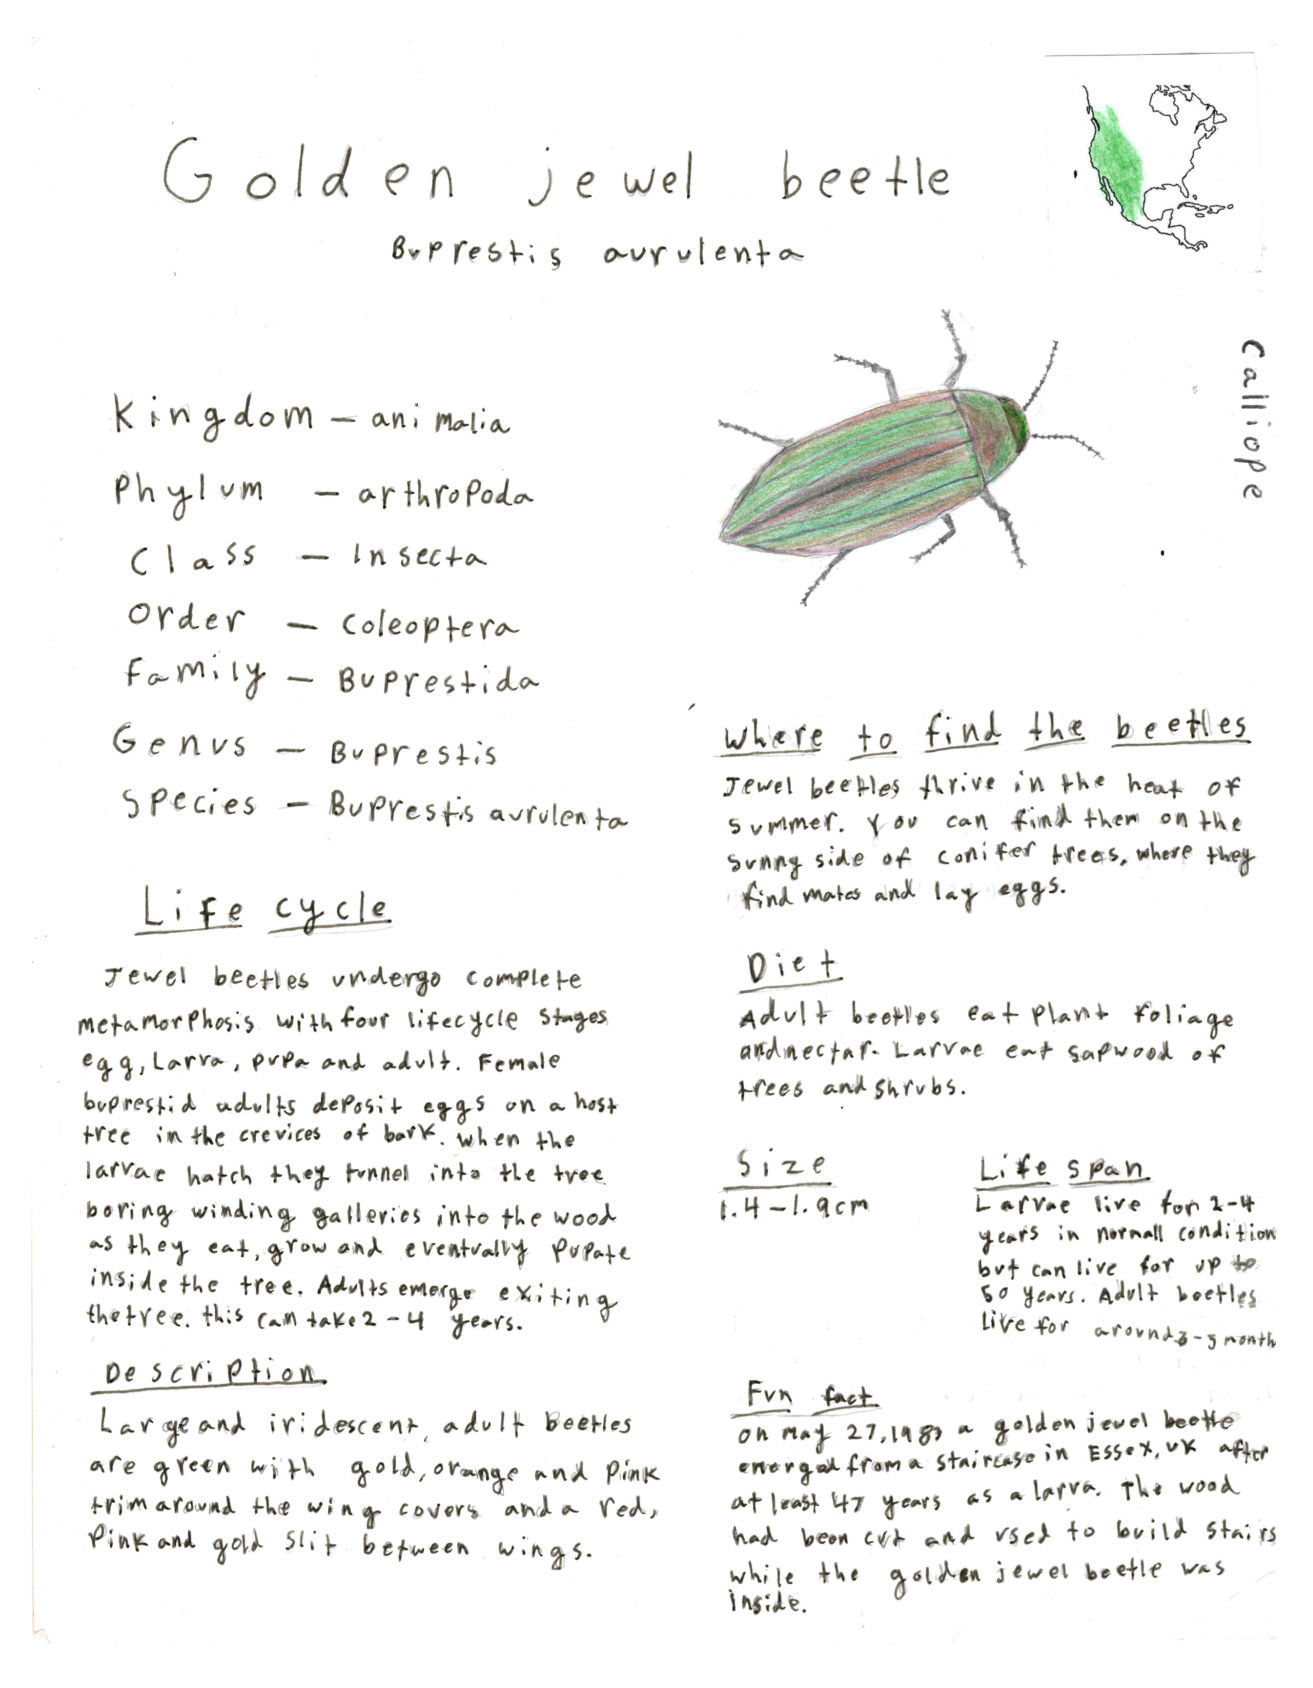 Golden jewel beetle
Buprestis aurulenta
Calliope
Kingdom - animalia
Phylum - arthropoda
Class - Insecta
Order - Coleoptera
Family - Buprestida
Genus - Buprestis
Species - Buprestis aurulenta
Life cycle
Jewel beetles undergo complete
metamorphosis with four lifecycle stages
egg, Larva, pupa and adult. Female
buprestid adults deposit eggs on a host
tree in the crevices of bark. When the
larvae hatch they tunnel into the tree
boring winding galleries into the wood
as they eat, grow and eventually pupate
inside the tree. Adults emerge exiting
the tree. this can take 2-4 years.
Description
Large and iridescent, adult beetles
are green with gold, orange and pink
trim around the wing covers and a red,
pink and gold slit between wings.
Where to find the beetles
Jewel beetles thrive in the heat of
summer. You can find them on the
sunny side of conifer trees, where they
find mates and lay eggs.
Diet
Adult beetles eat plant foliage
and nectar. Larvae eat sapwood of
trees and shrubs.
Size
1.4-1.9cm
Life span
Larvae live for 2-4
years in normall condition
but can live for up to
50 years. Adult beetles
live for around 3-5 month
Fun fact
on may 27, a golden jewel beetle
emerged from a staircase in Essex, UK after
at least 47 years as a larva. The wood
had been cut and used to build stairs
while the golden jewel beetle was
inside.